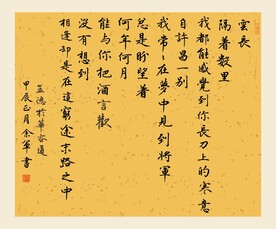 雲長
隔着數里
我都能感覺到你長刀上的寒意
自許昌一别
我常々在夢中見到將軍
总是盼望着
何年何月
能与你把酒言歡
沒有想到
相逢卻是在這窮途末路之中
孟德於華容道
甲辰正月余軍書